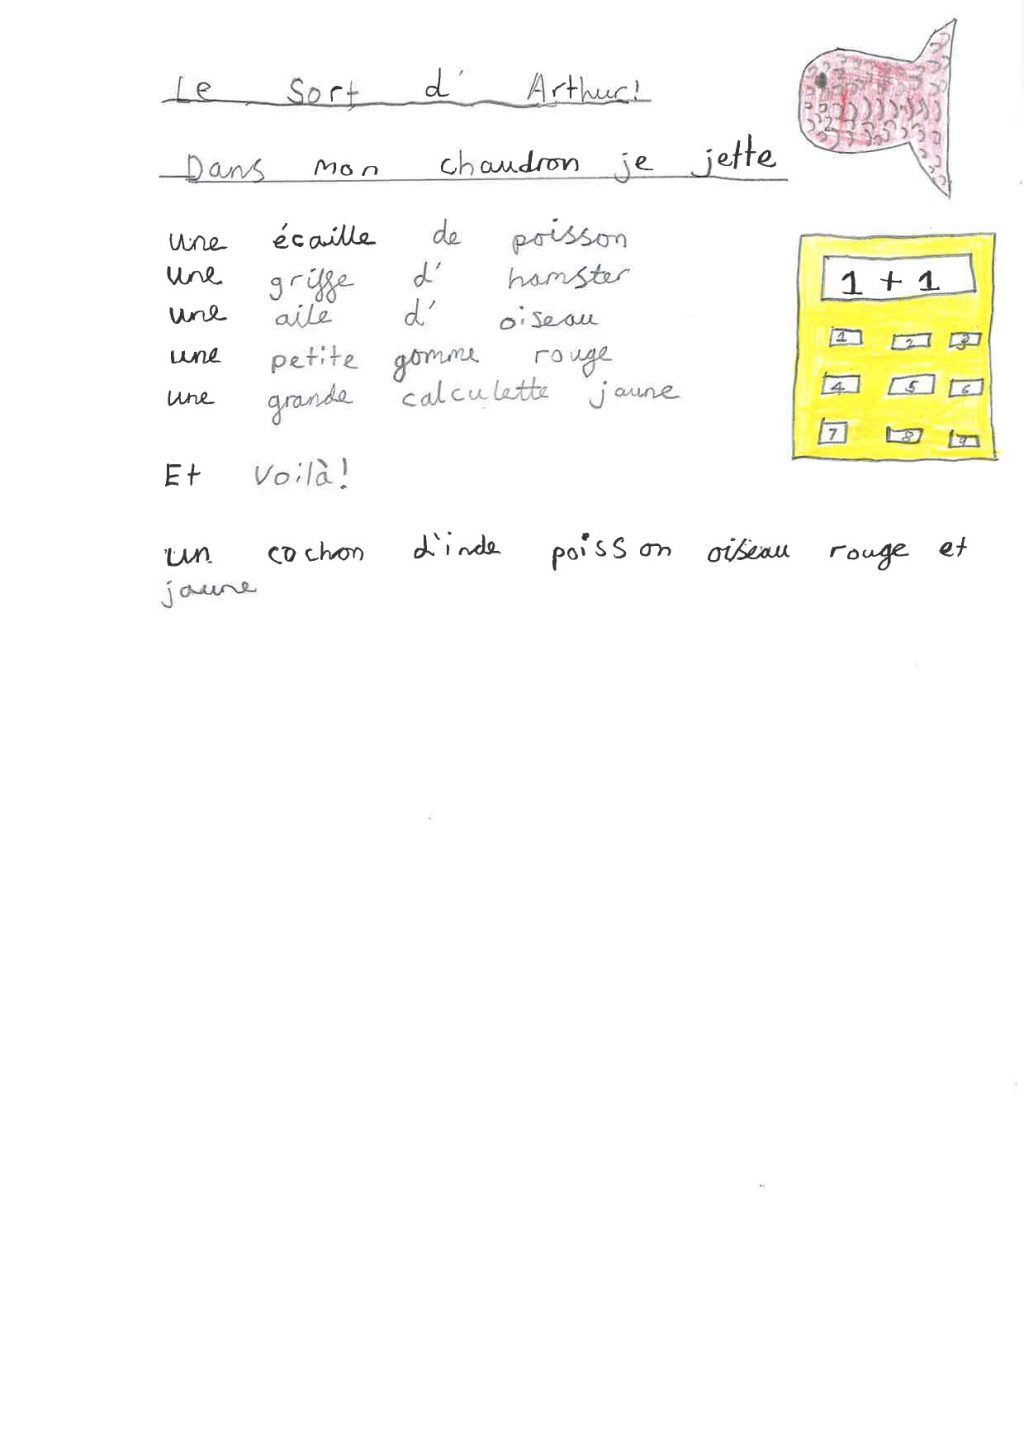 Le Sort d' Arthur!
Dans mon chaudron je jette
une écaille de poisson
une griffe d' hamster
une aile d' oiseau
une petite gomme rouge
une grande calculette jaune
Et Voilà!
un cochon d'inde poisson oiseau rouge et
jaune
1 + 1
1 2 3
4 5 6
7 8 9